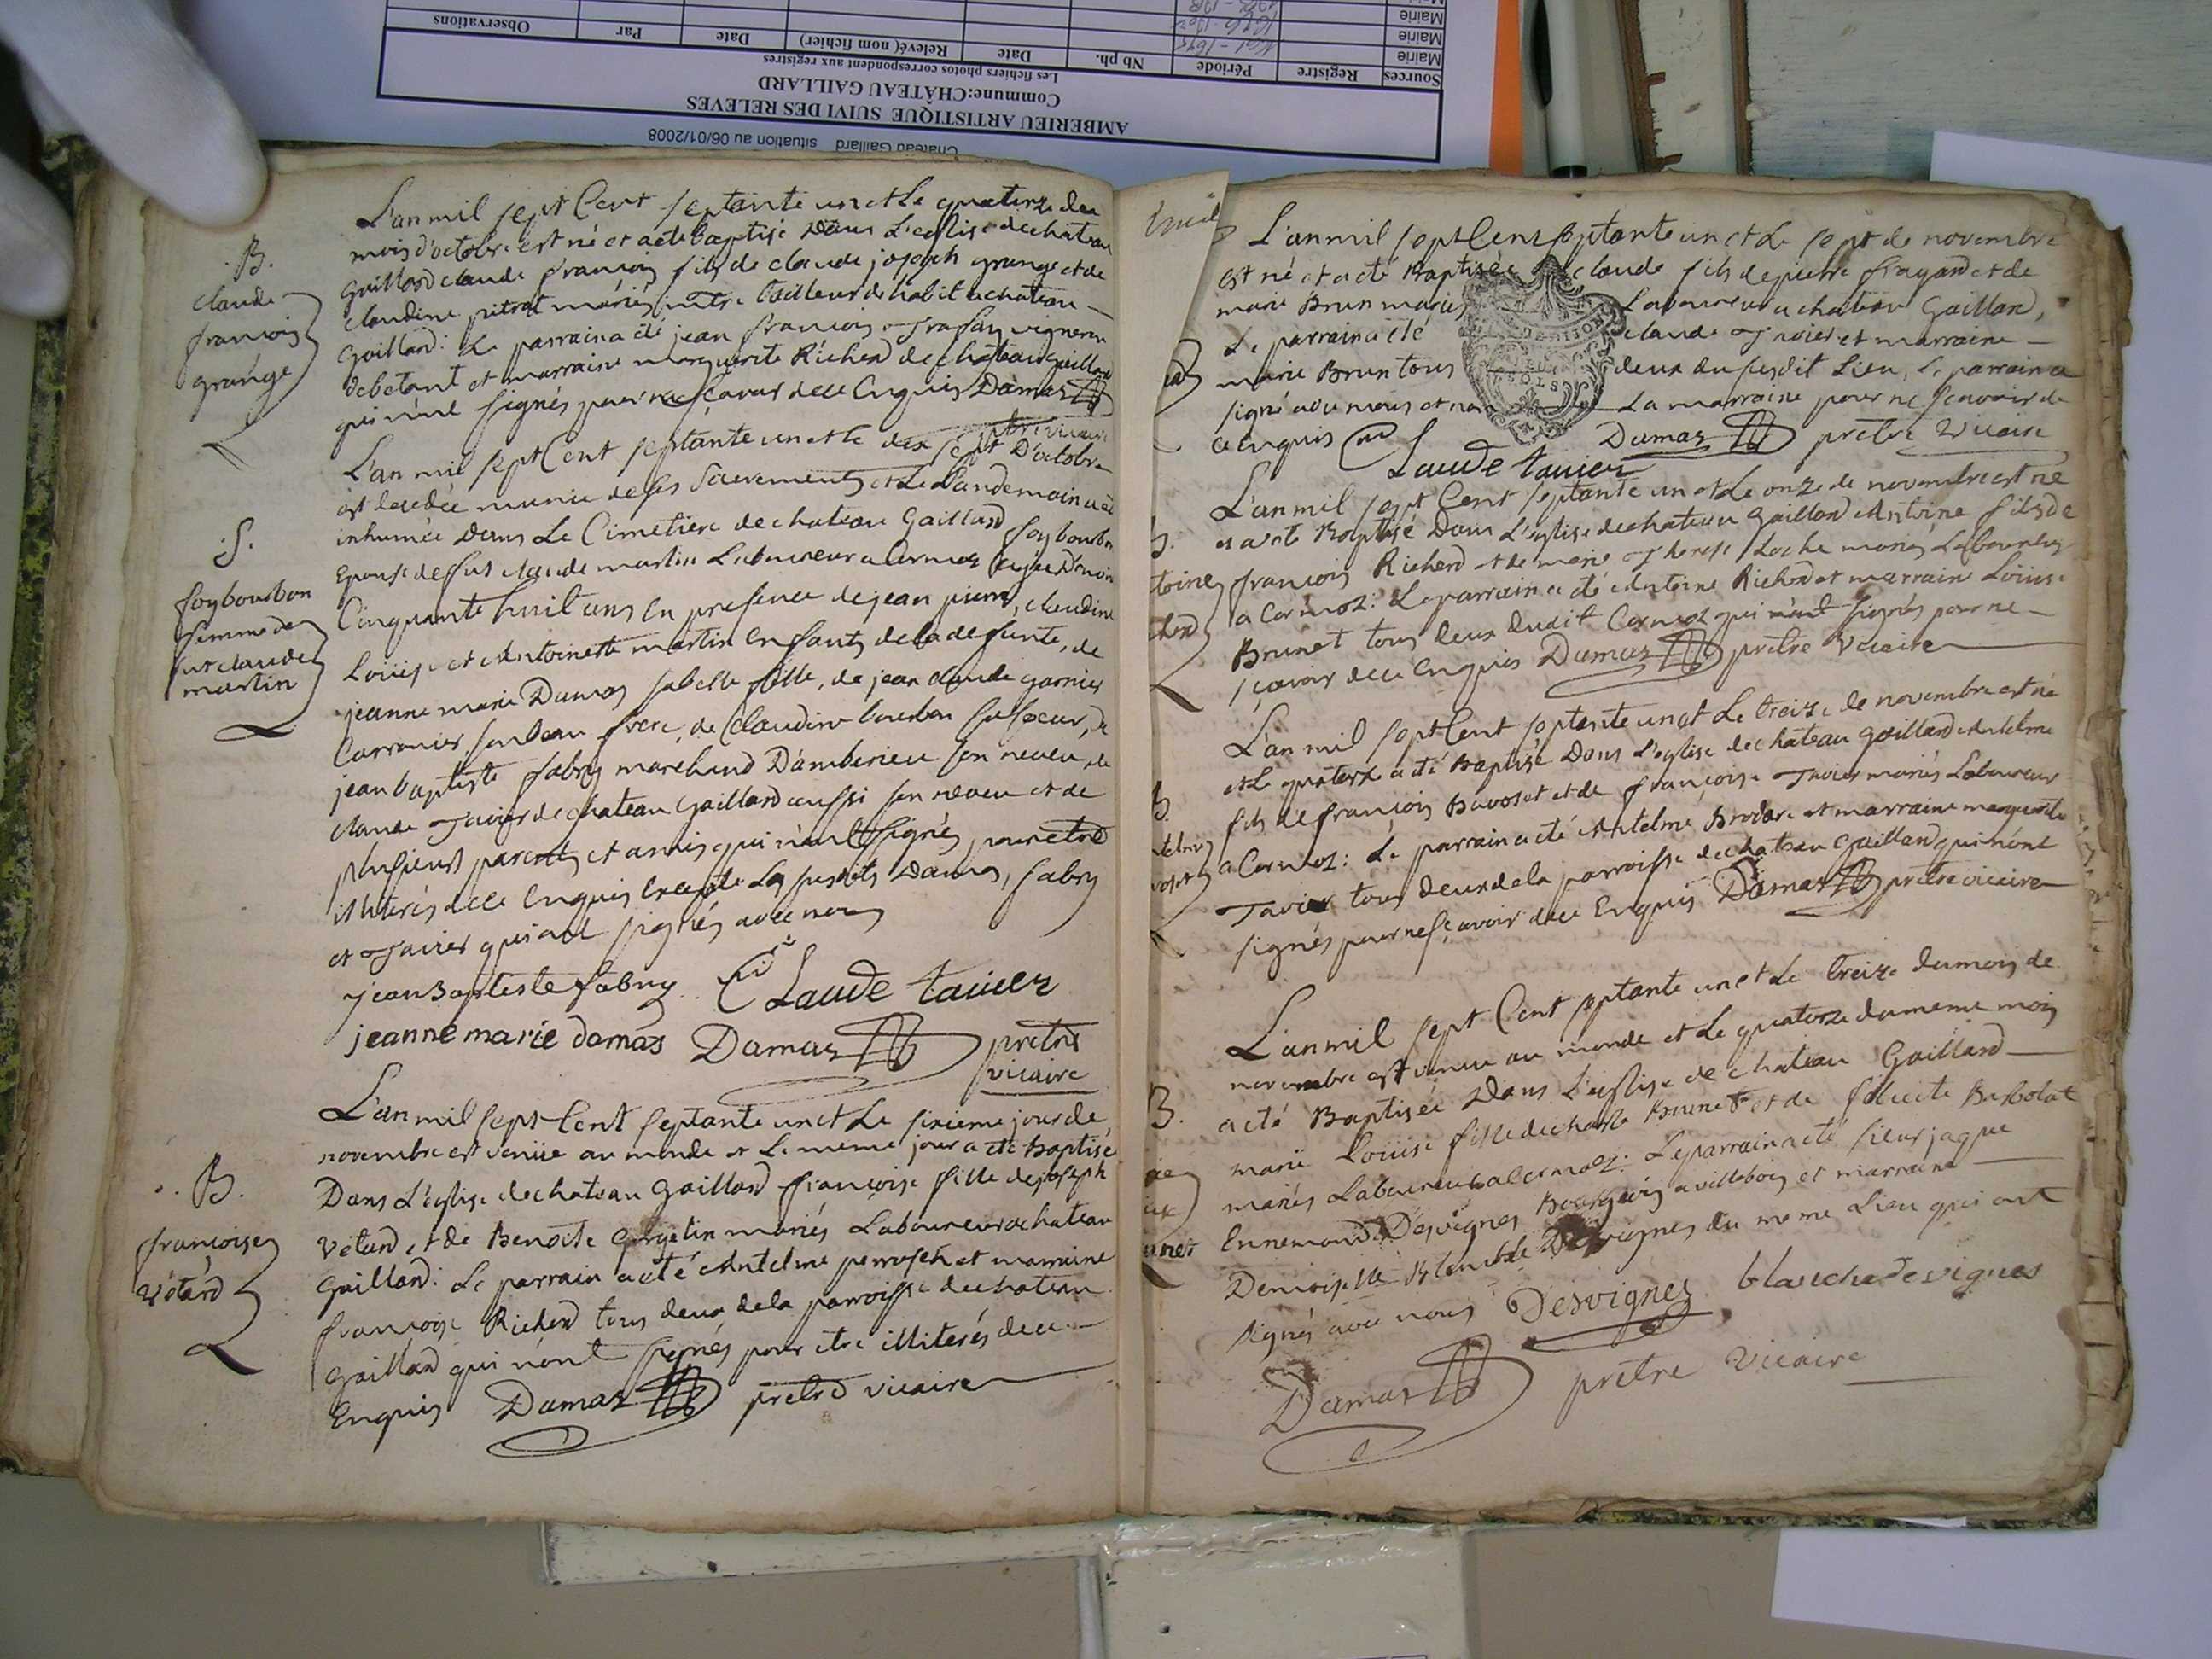 Château Gaillard situation au 06/01/2008
AMBERIEU ARTISTIQUE SUIVI DES RELEVES
Commune:CHÂTEAU GAILLARD
Les fichiers photos correspondent aux registres
Sources Registre Période Nb ph. Date Relevé( nom fichier) Date Par Observations
Mairie 1691-1695
Mairie
Mairie
L'an mil sept Cent septante un et Le quatorze du
mois d'octobre est né et a eté baptisé Dans L'eglise de chateau
gaillard claude françois fils de claude joseph grange et de
claudine pitrat mariés tailleur d'habit a chateau
gaillard: Le parrain a eté jean françois vigneron
de betant et marraine marguerite Richerd de chateau gaillard
qui n'ont signés pour ne sçavoir de ce Enquis Damas
prêtre vicaire
.B.
claude
françois
grange
L'an mil sept Cent septante un et le dix sept D'octobre
est decedée munie de ses Sacrements et Le Landemain a eté
inhumée Dans Le Cimetiere de chateau Gaillard foy bourbon
Epouse de fut claude martin Laboureur a Cormoz agée D'environ
Cinquante huit ans En presence de jean pierre, claudine
Loüise et Antoinette martin Enfants de la defunte, de
jeanne marie Damas sa belle fille, de jean claude garnier
Carronier son beau frere, de Claudine bourbon sa soeur, de
jean baptiste fabry marchand D'amberieu son neveu, de
claude Tavier de chateau Gaillard aussi son neveu et de
plusieurs parents et amis qui n'ont signés pour etre
illiterés de ce Enquis Excepté Les susdits Damas, fabry
et Tavier qui ont signés avec nous
.S.
foy bourbon
femme de
fut claude
martin
jean Baptiste fabry Claude tavier
jeanne marie damas Damas prêtre
vicaire
L'an mil sept Cent septante un et Le sixieme jour de
novembre est venüe au monde et Le meme jour a eté Baptisé
Dans L'eglise de chateau Gaillard françoise fille de joseph
Vétard et de Benoite mariés Laboureur a chateau
gaillard: Le parrain a eté Antelme et marraine
françoise Richerd tous deux de la parroisse de chateau
Gaillard qui n'ont signés pour etre illiterés de ce
Enquis Damas prêtre vicaire
.B.
françoise
Vétard
L'an mil sept Cent septante un et Le sept de novembre
est né et a eté Baptisée claude fils de pierre frayard et de
marie Brun mariés Laboureur a chateau Gaillard,
Le parrain a eté claude Tavier et marraine
marie Brun tous deux du susdit Lieu, Le parrain a
signé avec nous et non La marraine pour ne sçavoir de
ce enquis Damas prêtre Vicaire
Claude tavier
L'an mil sept Cent septante un et Le onze de novembre est né
et a eté Baptisé Dans L'eglise de chateau Gaillard Antoine fils de
françois Richerd et de marie Therese Loche mariés Laboureur
a Cormoz: Le parrain a eté Antoine Richerd et marraine Loüise
Brunet tous deux dudit Cormoz qui n'ont signés pour ne
sçavoir de ce Enquis Damas prêtre Vicaire
B.
toine
cherd
L'an mil sept Cent septante un et Le treize de novembre est né
et Le quatorze a eté Baptisé Dans L'eglise de chateau gaillard Antelme
fils de françois Bavoset et de françoise Tavier mariés Laboureur
a Cormoz: Le parrain a eté Antelme et marraine marguerite
Tavier tous deux de la parroisse de chateau Gaillard qui n'ont
signés pour ne sçavoir de ce Enquis Damas prêtre vicaire
B.
L'an mil sept Cent septante un et Le treize du mois de
novembre est venüe au monde et Le quatorze du meme mois
a eté Baptisée Dans L'eglise de chateau Gaillard
marie Loüise fille de charle Brunet et de felicité
mariés Laboureur a Cormoz: Le parrain a eté sieur jaque
Ennemond Desvignes Bourgeois a villebois et marraine
Demoiselle Blanche Desvignes du meme Lieu qui ont
signés avec nous Desvignes blanche desvignes
Damas prêtre Vicaire
B.
unet